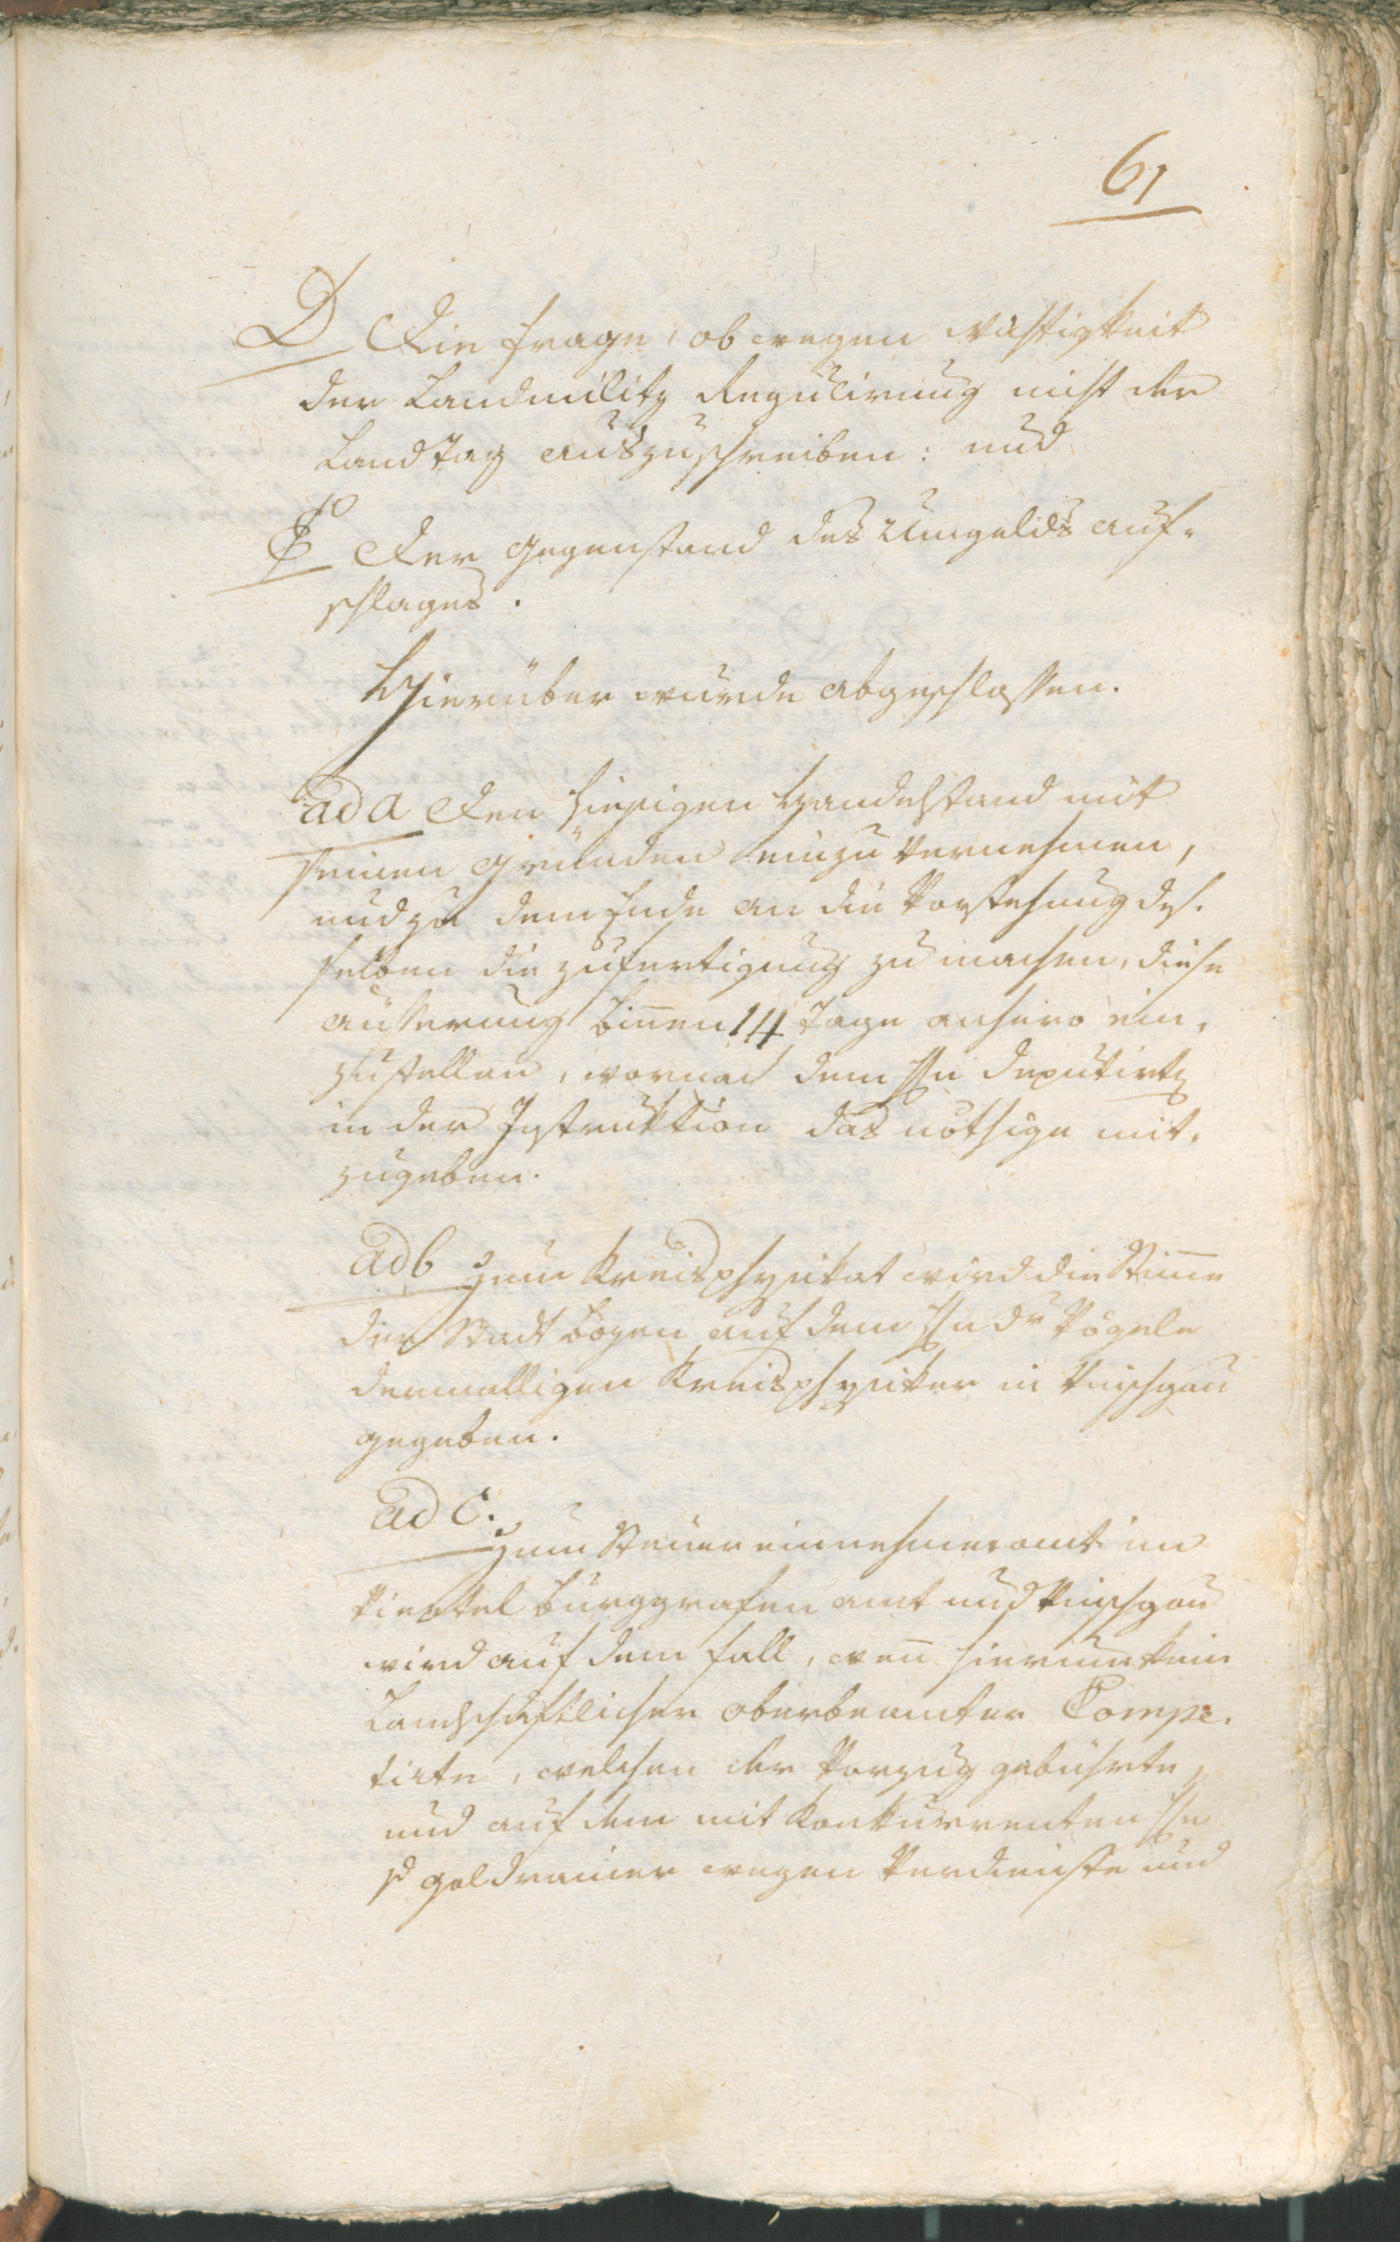 61
D Die frage, ob wegen Wichtigkeit
der Landmilitz Regulirung nicht der
Landtag auszuschreiben: und
E Der Gegenstand des Umgelds auf-
schlages.
Hierüber wurde abgeschlossen.
ad a Den hiesigen Handelstand mit
seinen Gründen einzuvernehmen,
und zu dem Ende an die Vorstehung des-
selben die zufertigung zu machen, diese
äusserung biñen 14 Tage anhero ein-
zustellen, wornach dem Hn Deputirten
in der Instruktion das nöthige mit-
zugeben.
ad b zum Kreisphysikat wird die Stim̄e
der Stadt Bozen auf dem Hn Dr Vögele
dermalligen Kreisphysiker in Vinschgau
gegeben.
ad C.
zum Steuereinnehmeramt im
Viertel Burggrafenamt und Vinschgau
wird auf dem fall, weñ hierum kein
Landschaftlicher oberbeamter Compe-
tirte, welchen der Vorzug gebührte,
und auf dem mit Konkurrenten Hn
v Goldrainer wegen Verdienste und